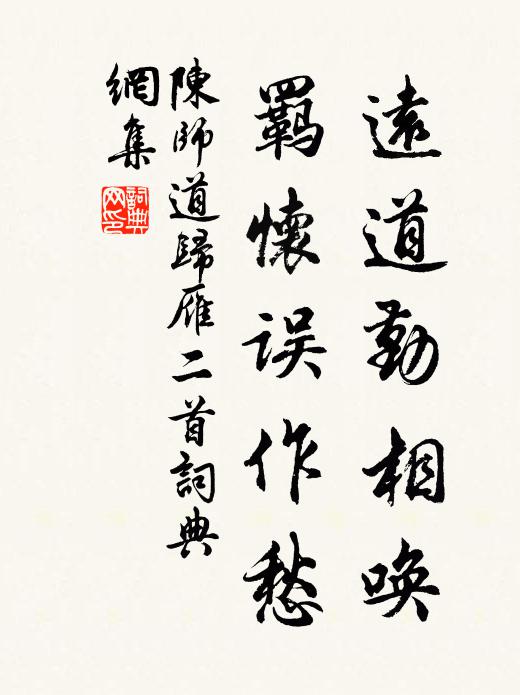 遠道勤相喚
羈懷误作愁
陳師道歸雁二首詞典
網集
詞典
网印